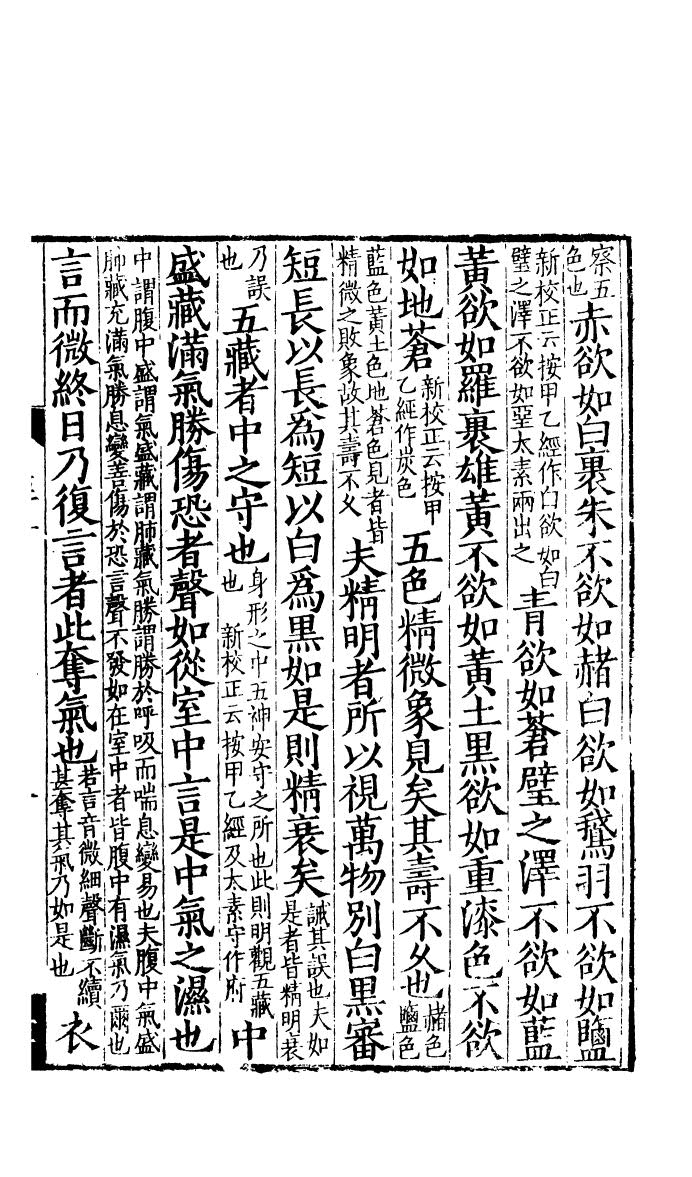 察五色也赤欲如白裹朱不欲如赭白欲如鵞羽不欲如鹽
新校正云按甲乙經作白欲如白璧之澤不欲如堊太素兩出之青欲如蒼璧之澤不欲如藍
黃欲如羅裹雄黃不欲如黃土黑欲如重漆色不欲
如地蒼新校正云按甲乙經作炭色五色精微象見矣其壽不久也赭色鹽色
藍色黃土色地蒼色見者皆精微之敗象故其壽不久夫精明者所以視萬物別白黑審
短長以長爲短以白爲黑如是則精衰矣誡其誤也夫如是者皆精明衰
乃誤也五藏者中之守也身形之中五神安守之所也此則明觀五藏也新校正云按甲乙經及太素守作府中
盛藏滿氣勝傷恐者聲如從室中言是中氣之濕也
中謂腹中盛謂氣盛藏謂肺藏氣勝謂勝於呼吸而喘息變易也夫腹中氣盛肺藏充滿氣勝息變善傷於恐言聲不發如在室中者皆腹中有濕氣乃爾也
言而微終日乃復言者此奪氣也若言音微細聲斷不續甚奪其氣乃如是也衣